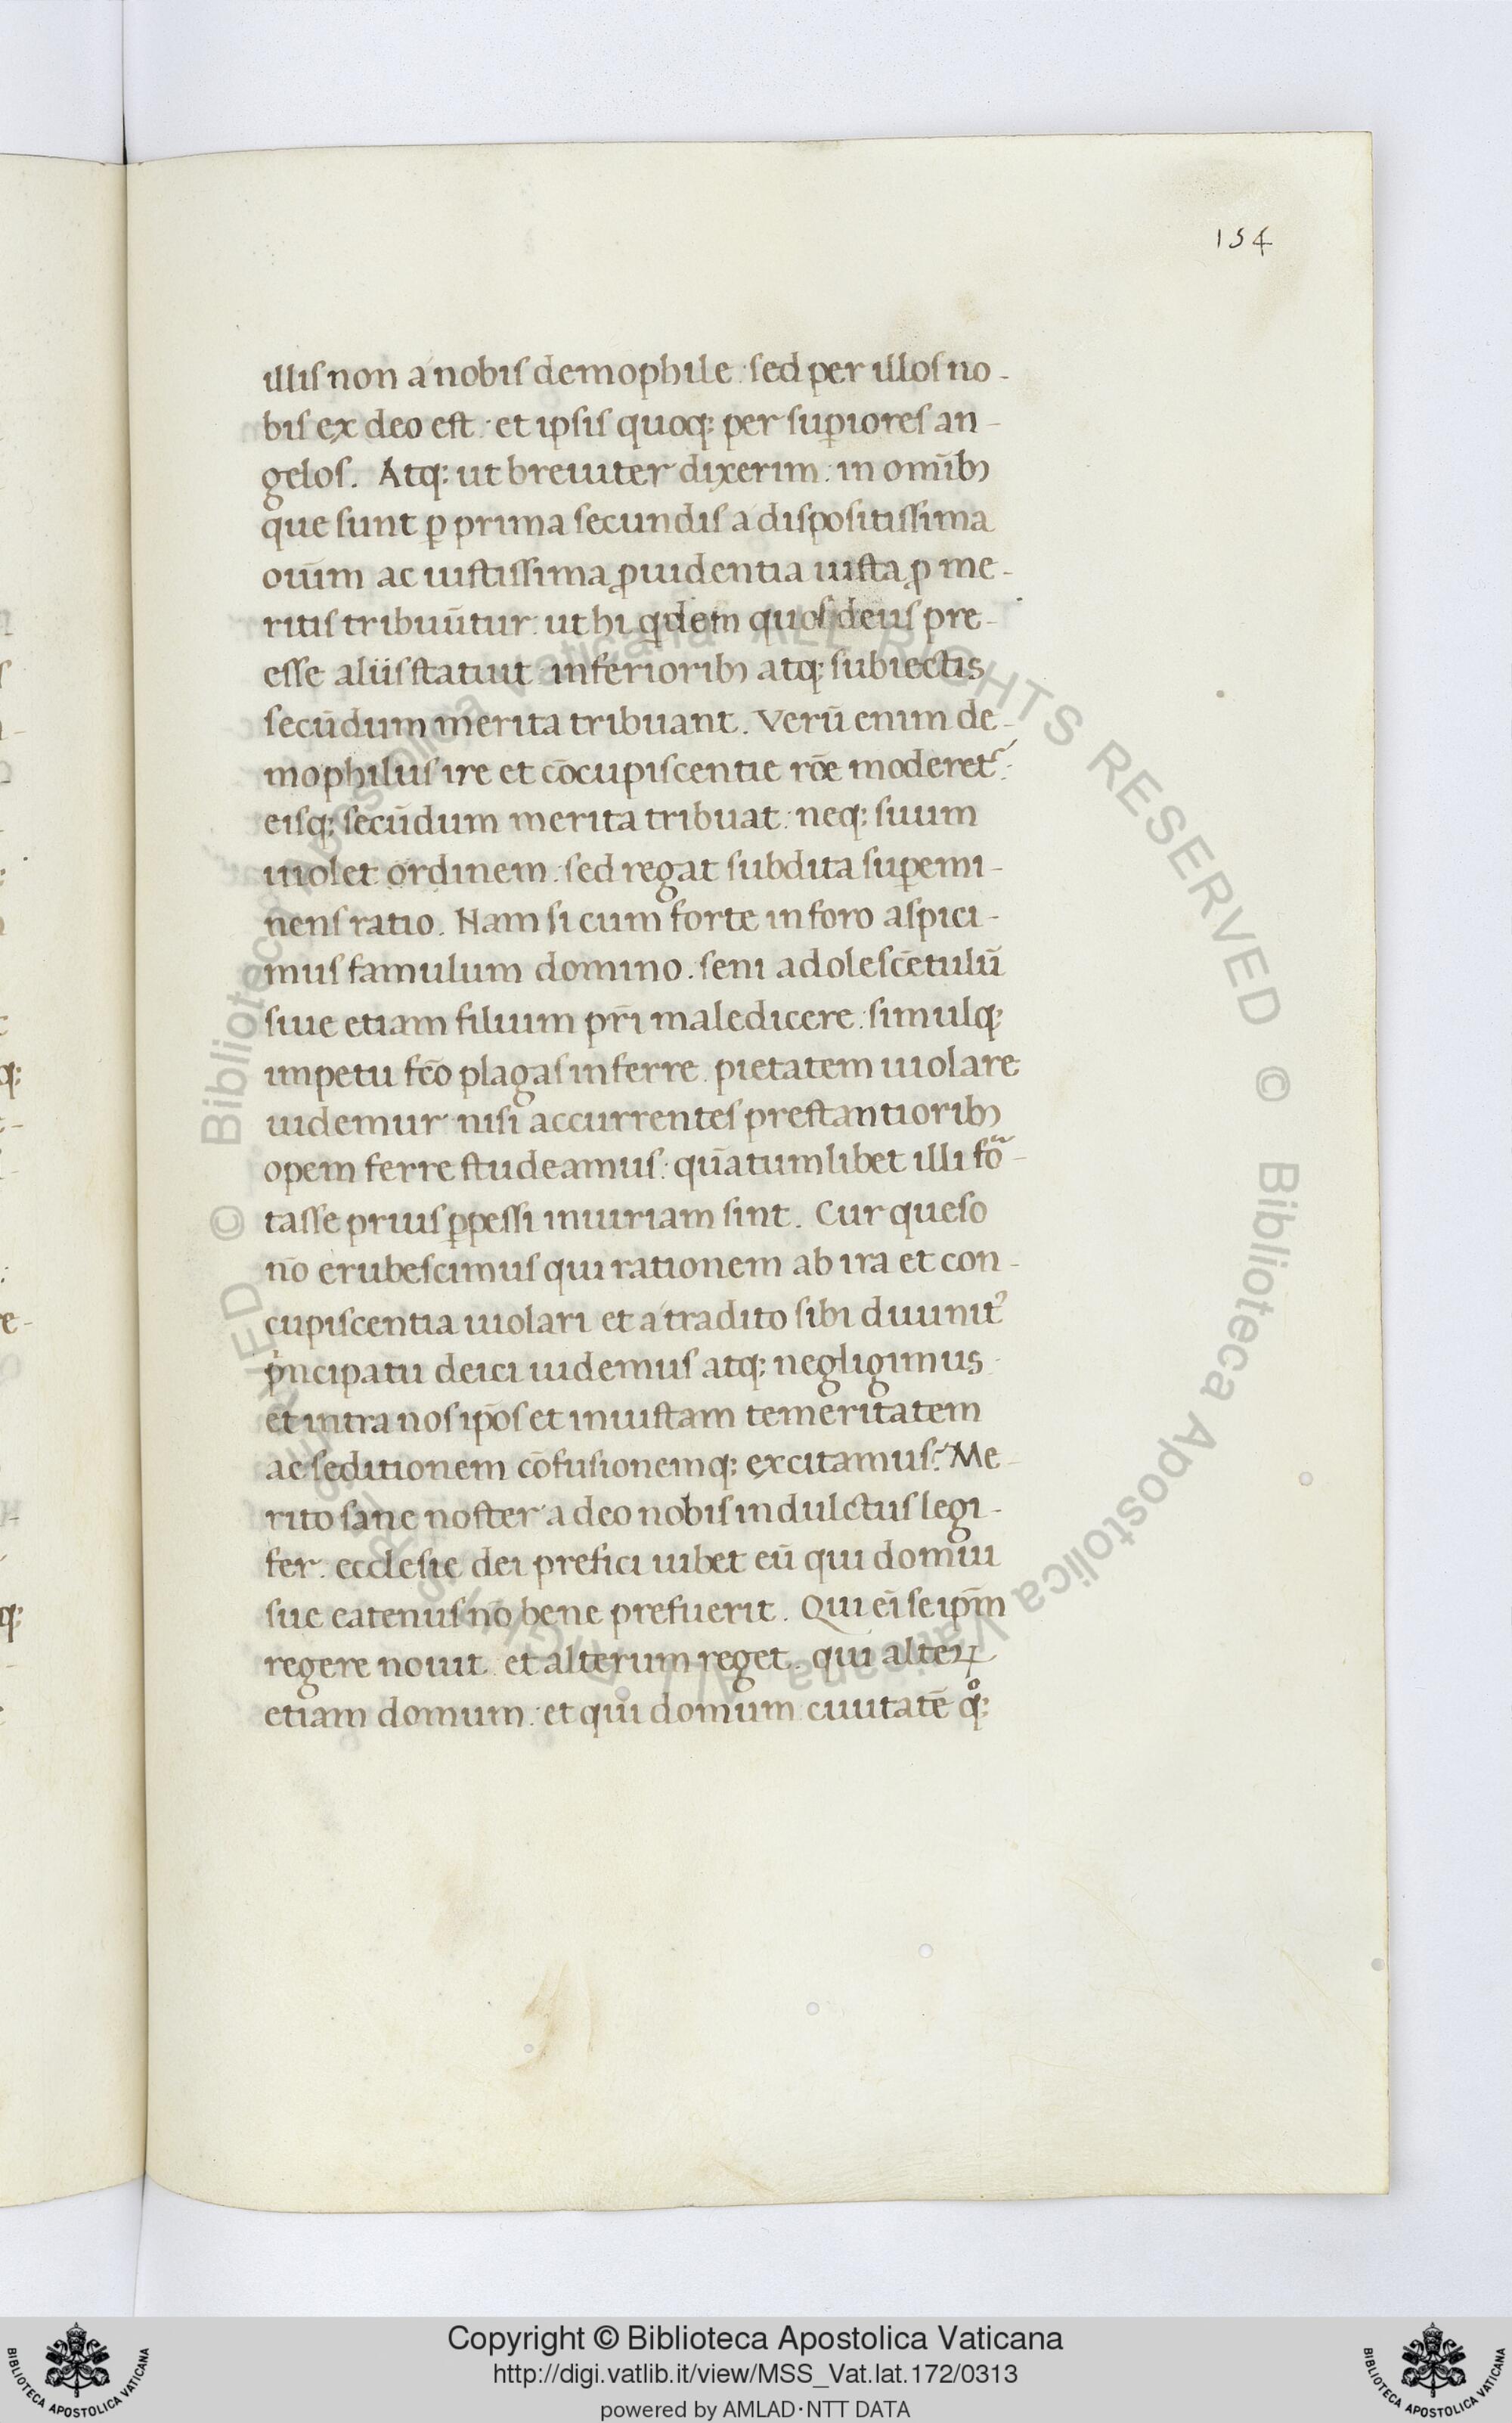 154
illis non a nobis demophile : sed per illos no-
bis ex deo est : et ipsis quoq; per sup̱iores an-
gelos. Atq; ut breuiter dixerim : in om̄ibꝫ
que sunt ꝑ prima secundis a dispositissima
oīum ac iustissima ꝓuidentia iusta ꝓ me-
ritis tribuūtur : ut hi qͥdem quos deus pre-
esse aliis statuit : inferioribꝫ atq; subiectis
secūdum merita tribuant. Verū enim de-
mophilus ire et cōcupiscentie rōe moderetᷣ :
eisq; secūdum merita tribuat : neq; suum
uiolet ordinem : sed regat subdita suꝑemi-
nens ratio. Nam si cum forte in foro aspici-
mus famulum domino. seni adolescētulū
siue etiam filium pr̄i maledicere : simulq;
impetu fc̄o plagas inferre. pietatem uiolare
uidemur nisi accurrentes prestantioribꝫ
opem ferre studeamus : quātumlibet illi foͬ-
tasse prius ꝑpessi iniuriam sint. Cur queso
nō erubescimus qui rationem ab ira et con-
cupiscentia uiolari et a tradito sibi diuinitᷣ
pͥncipatu deici uidemus atq; negligimus
et intra nos ip̄os et iniustam temeritatem
ac seditionem cōfusionemq; excitamus? Me-
rito sane noster a deo nobis indulctus legi-
fer. ecclesie dei prefici iubet eū qui domui
sue eatenus nō bene prefuerit. Qui ei̅ se ip̄m
regere nouit et alterum reget. qui alteꝝ
etiam domum : et qui domum ciuitatē qͦ;
ALL RIGHTS RESERVED © Biblioteca Apostolica Vaticana
Copyright © Biblioteca Apostolica Vaticana
http://digi.vatlib.it/view/MSS_Vat.lat.172/0313
powered by AMLAD·NTT DATA
BIBLIOTECA APOSTOLICA VATICANA
BIBLIOTECA APOSTOLICA VATICANA